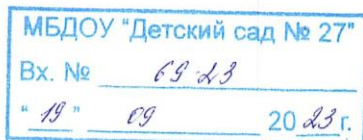 МБДОУ "Детский сад № 27"
Вх. № 69-23
" 19 " 09 20 23 г.